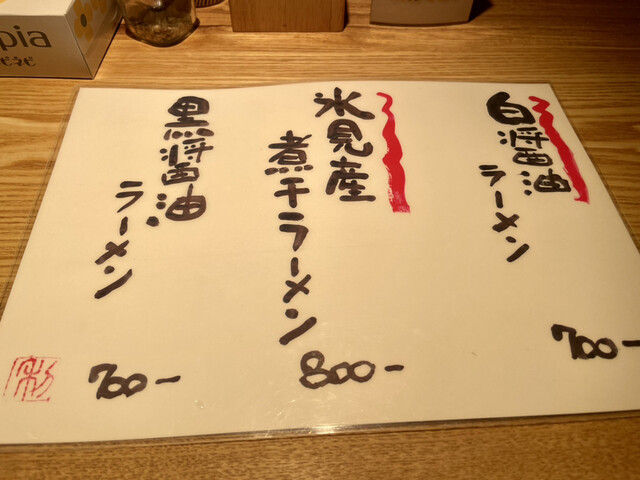 白醤油
ラーメン
700-
氷見産
煮干ラーメン
800-
黒醤油
ラーメン
700-
pia